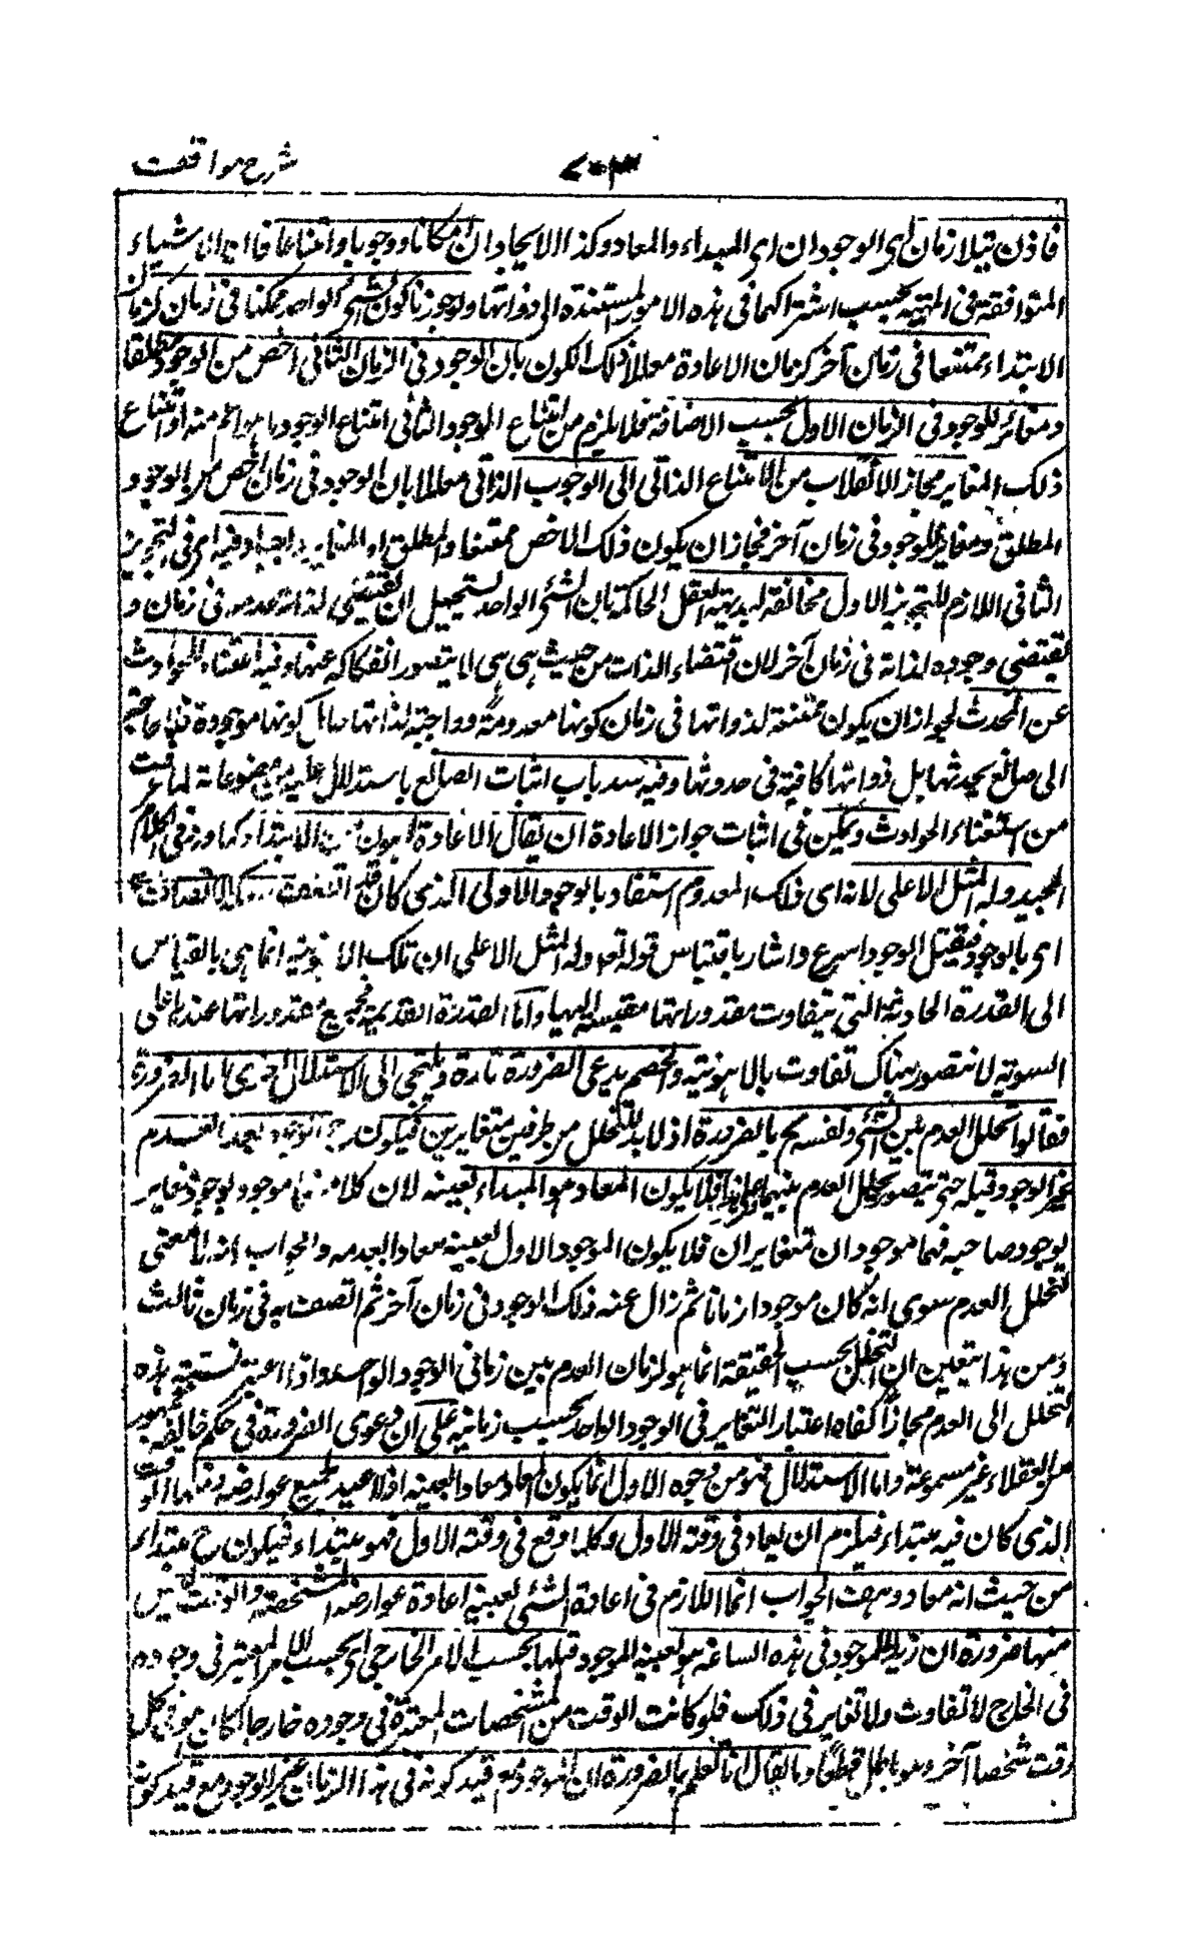 شرح مواقف
٧٠٣
فاذن يتلازمان اى الوجودان اى المبداء والمعاد وكذا الايجادان امكانا ووجوبا وامتناعا فان الاشياء
المتوافقة فى المهية يجب اشتراكها فى هذه الامور المستندة الى ذواتها ولو جوزنا كون الشئ الواحد ممكنا فى زمان كزمان
الابتداء ممتنعا فى زمان آخر كزمان الاعادة معللا ذلك الكون بان الوجود فى الزمان الثانى اخص من الوجود مطلقا
ومغائر للوجود فى الزمان الاول بحسب الاضافة فلا يلزم من امتناع الوجود الثانى امتناع الوجود ما هو اعم منه او امتناع
ذلك المغاير لجاز الانقلاب من الامتناع الذاتى الى الوجوب الذاتى معللا بان الوجود فى زمان اخص من الوجود
المطلق ومغاير للوجود فى زمان آخر فجاز ان يكون ذلك الاخص ممتنعا والمطلق او المغاير واجبا وفيه اى فى التجويز
الثانى اللازم للتجويز الاول مخالفة لبديهة العقل الحاكمة بان الشئ الواحد يستحيل ان يقتضى لذاته عدمه فى زمان و
يقتضى وجوده لذاته فى زمان آخر لان اقتضاء الذات من حيث هى هى لا يتصور انفكاكه عنها وفيه اغناء للحوادث
عن المحدث لجواز ان يكون ممتنعة لذواتها فى زمان كونها معدومة وواجبة لذاتها حال كونها موجودة فلا حاجة
الى صانع يحدثها بل ذواتها كافية فى حدوثها وفيه سد باب اثبات الصانع باستدلال عليه من مصنوعاته لما عرفت
من استغناء الحوادث ويمكن فى اثبات جواز الاعادة ان يقال الاعادة اهون من الابتداء كما ورد فى الكلام
المجيد وله المثل الاعلى لانه اى ذلك المعدوم استفاد بالوجود الاولى الذى كان قد اتصف به ملكة الاتصاف
اى بالوجود فيقبل الوجود اسرع واشار باقتباس قوله تع وله المثل الاعلى ان تلك الاهونية انما هى بالقياس
الى القدرة الحادثة التى يتفاوت مقدوراتها مقيسة اليها واما القدرة القديمة فجميع مقدوراتها عندها على
السوية لا يتصور هناك تفاوت بالاهونية والخصم يدعى الضرورة تارة ويلتجى الى الاستدلال اخرى اما الضرورة
فقالوا تخلل العدم بين الشئ ونفسه مح بالضرورة اذ لا بد للتخلل من طرفين متغايرين فيكون ح الوجود بعد العدم
غير الوجود قبله حتى يتصور تخلل العدم بينهما فلا يكون المعاد هو المبداء بعينه لان كلا منهما موجود بوجود مغاير
لوجود صاحبه فهما موجودان متغايران فلا يكون الموجود الاول بعينه معادا بعدمه والجواب انه لا معنى
لتخلل العدم سوى انه كان موجودا زمانا ثم زال عنه ذلك الوجود فى زمان آخر ثم اتصف به فى زمان ثالث
ومن هذا يتعين ان التخلل بحسب الحقيقة انما هو لزمان العدم بين زمانى الوجود الواحد واذا اعتبر نسبة هذه
التخلل الى العدم مجازا كفاه اعتبار التغاير فى الوجود الواحد بحسب زمانيه على ان دعوى الضرورة فى حكم خالفه جمهور
من العقلاء غير مسموعة واما الاستدلال فهو من وجوه الاول انما يكون المعاد معادا بعينه اذا اعيد بجميع عوارضه ومنها الوقت
الذى كان فيه مبتداء فيلزم ان يعاد فى وقته الاول وكل ما وقع فى وقته الاول فهو مبتداء فيكون ح مبتداء
من حيث انه معاد وهف الجواب انما اللازم فى اعادة الشئ بعينه اعادة عوارضه المشخصة والوقت ليس
منها ضرورة ان زيد الموجود فى هذه الساعة هو بعينه الموجود قبلها بحسب الامر الخارجى اى بحسب الامر المعتبر فى وجوده
فى الخارج لا تفاوت ولا تغاير فى ذلك فلو كانت الوقت من المشخصات المعتبرة فى وجوده خارجا لكان هو فى كل
وقت شخصا آخر وهو باطل قطعا وما يقال انا نعلم بالضرورة ان الموجود مع قيد كونه فى هذا الزمان غير الموجود مع قيد كونه